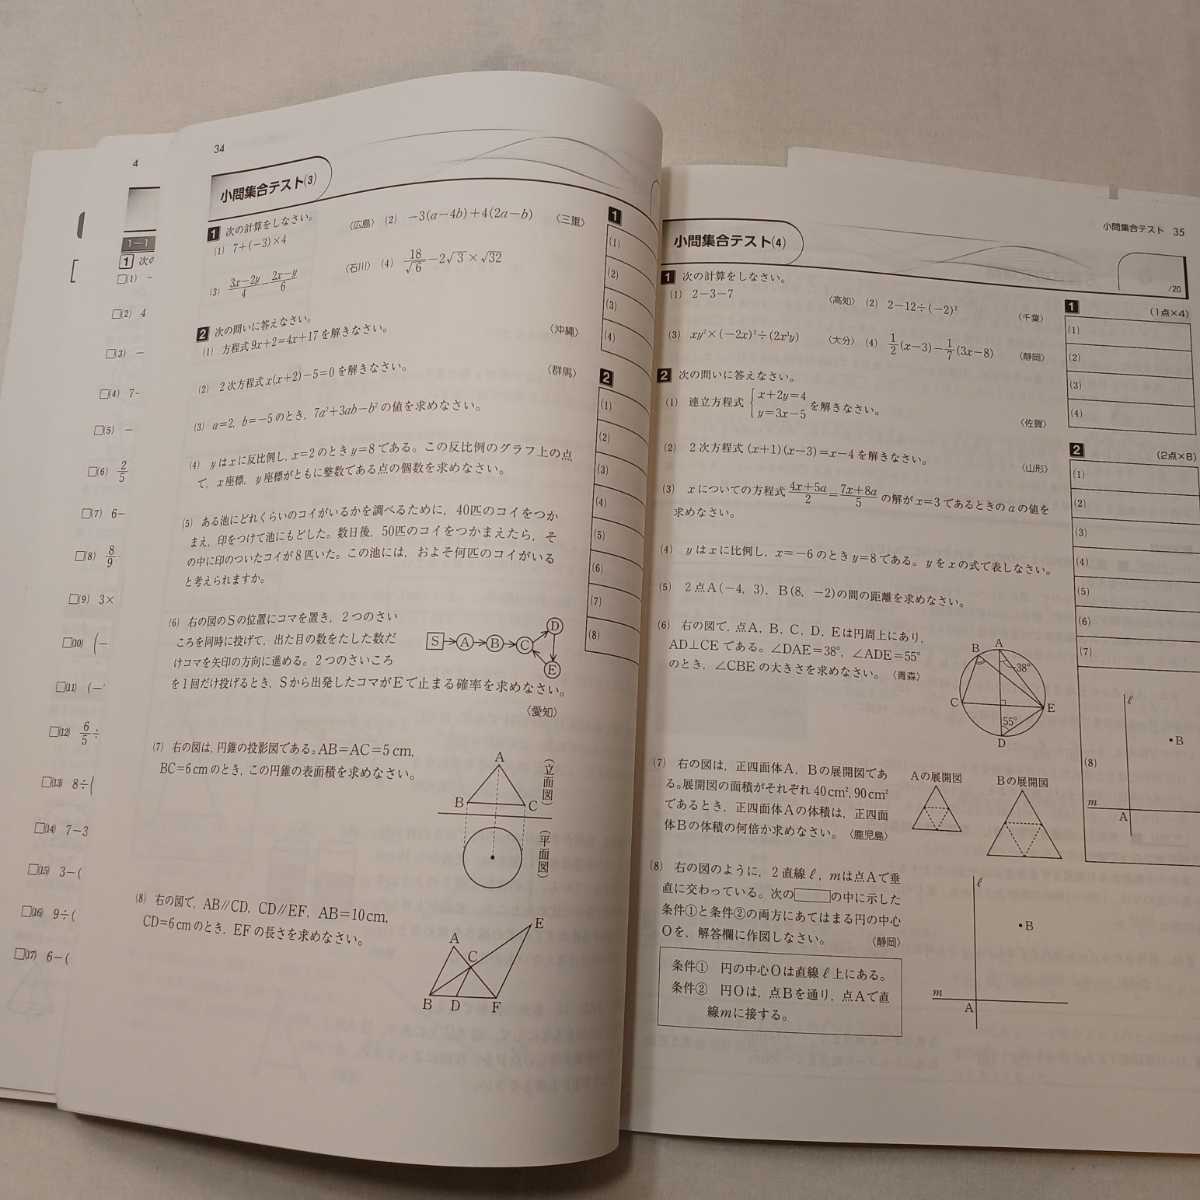 4
1-1
1 次の
□(1) −
□(2) 4
□(3) −
□(4) 7−
□(5) −
□(6) 2/5
□(7) 6−
□(8) 8/9
□(9) 3×
□(10) (−
□(11) (−
□(12) 6/5÷
□(13) 8÷(
□(14) 7−3
□(15) 3−(
□(16) 9÷(
□(17) 6−(
34
小問集合テスト(3)
1 次の計算をしなさい。
(1) 7+(−3)×4 〈広島〉 (2) −3(a−4b)+4(2a−b) 〈三重〉
(3) (3x−2y)/4−(2x−y)/6 〈石川〉 (4) 18/√6−2√3×√32
2 次の問いに答えなさい。
(1) 方程式9x+2=4x+17を解きなさい。 〈沖縄〉
(2) 2次方程式x(x+2)−5=0を解きなさい。 〈群馬〉
(3) a=2, b=−5のとき, 7a²+3ab−b²の値を求めなさい。
(4) yはxに反比例し, x=2のときy=8である。この反比例のグラフ上の点
で, x座標, y座標がともに整数である点の個数を求めなさい。
(5) ある池にどれくらいのコイがいるかを調べるために, 40匹のコイをつか
まえ, 印をつけて池にもどした。数日後, 50匹のコイをつかまえたら, そ
の中に印のついたコイが8匹いた。この池には, およそ何匹のコイがいる
と考えられますか。
(6) 右の図のSの位置にコマを置き, 2つのさい
ころを同時に投げて, 出た目の数をたした数だ
けコマを矢印の方向に進める。2つのさいころ
を1回だけ投げるとき, Sから出発したコマがEで止まる確率を求めなさい。
〈愛知〉
S A B C D E
(7) 右の図は, 円錐の投影図である。AB=AC=5cm,
BC=6cmのとき, この円錐の表面積を求めなさい。
A
B C
(立面図)
(平面図)
(8) 右の図で, AB∥CD, CD∥EF, AB=10cm,
CD=6cmのとき, EFの長さを求めなさい。
E
A
C
B D F
1
(1)
(2)
(3)
(4)
2
(1)
(2)
(3)
(4)
(5)
(6)
(7)
(8)
小問集合テスト 35
小問集合テスト(4)
/20
1 次の計算をしなさい。
(1) 2−3−7 〈高知〉 (2) 2−12÷(−2)² 〈千葉〉
(3) xy²×(−2x)²÷(2x³y) 〈大分〉 (4) 1/2(x−3)−1/7(3x−8) 〈静岡〉
2 次の問いに答えなさい。
(1) 連立方程式{x+2y=4
y=3x−5 を解きなさい。 〈佐賀〉
(2) 2次方程式(x+1)(x−3)=x−4を解きなさい。 〈山形〉
(3) xについての方程式(4x+5a)/2=(7x+8a)/5の解がx=3であるときのaの値を
求めなさい。
(4) yはxに比例し, x=−6のときy=8である。yをxの式で表しなさい。
(5) 2点A(−4, 3), B(8, −2)の間の距離を求めなさい。
(6) 右の図で, 点A, B, C, D, Eは円周上にあり,
AD⊥CEである。∠DAE=38°, ∠ADE=55°
のとき, ∠CBEの大きさを求めなさい。 〈青森〉
B A
38°
C E
55°
D
(7) 右の図は, 正四面体A, Bの展開図であ
る。展開図の面積がそれぞれ40cm², 90cm²
であるとき, 正四面体Aの体積は, 正四面
体Bの体積の何倍か求めなさい。 〈鹿児島〉
Aの展開図 Bの展開図
(8) 右の図のように, 2直線ℓ, mは点Aで垂
直に交わっている。次の の中に示した
条件①と条件②の両方にあてはまる円の中心
Oを, 解答欄に作図しなさい。 〈静岡〉
条件① 円の中心Oは直線ℓ上にある。
条件② 円Oは, 点Bを通り, 点Aで直
線mに接する。
ℓ
B
m
A
1 (1点×4)
(1)
(2)
(3)
(4)
2 (2点×8)
(1)
(2)
(3)
(4)
(5)
(6)
(7)
ℓ
B
(8)
m
A